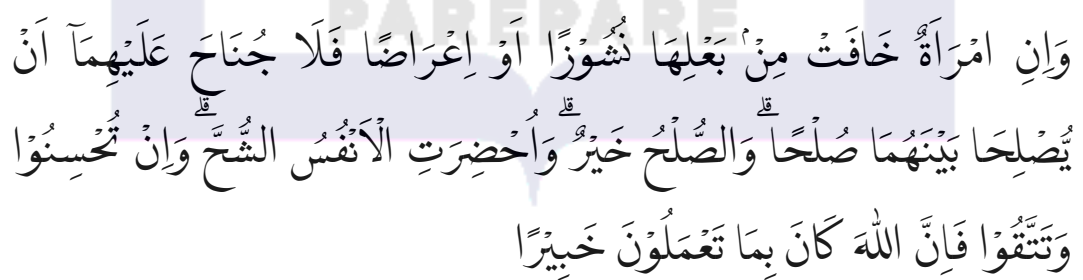 PAREPARE
وَاِنِ امْرَاَةٌ خَافَتْ مِنْۢ بَعْلِهَا نُشُوْزًا اَوْ اِعْرَاضًا فَلَا جُنَاحَ عَلَيْهِمَآ اَنْ
يُّصْلِحَا بَيْنَهُمَا صُلْحًاۗ وَالصُّلْحُ خَيْرٌۗ وَاُحْضِرَتِ الْاَنْفُسُ الشُّحَّۗ وَاِنْ تُحْسِنُوْا
وَتَتَّقُوْا فَاِنَّ اللّٰهَ كَانَ بِمَا تَعْمَلُوْنَ خَبِيْرًا